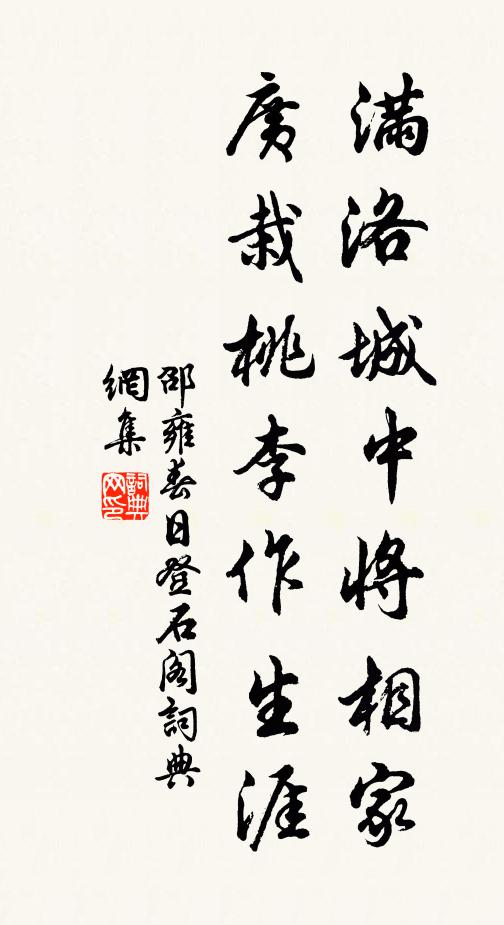 滿洛城中將相家
廣栽桃李作生涯
邵雍春日登石閣詞典
網集
詞典
网印